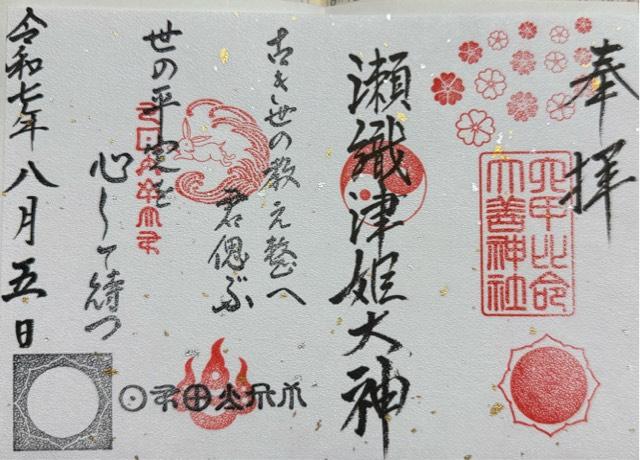 奉拝
六甲比命
大善神社
瀬織津姫大神
古き世の教え整へ
君偲ぶ
世の平定を
心して待つ
令和七年八月五日